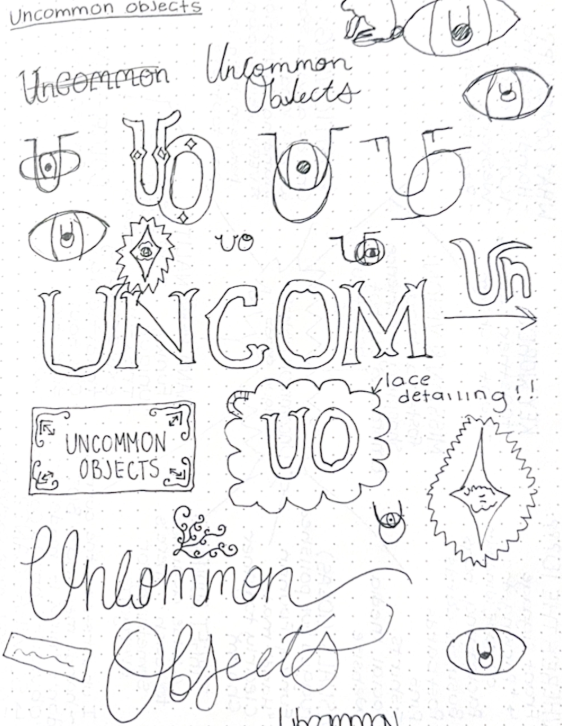 Uncommon objects
Uncommon
Uncommon
Objects
U
UO
U
UO
UO
UO
Un
UNCOM
lace
detailing!!
UNCOMMON
OBJECTS
UO
Uncommon
Objects
Uncommon